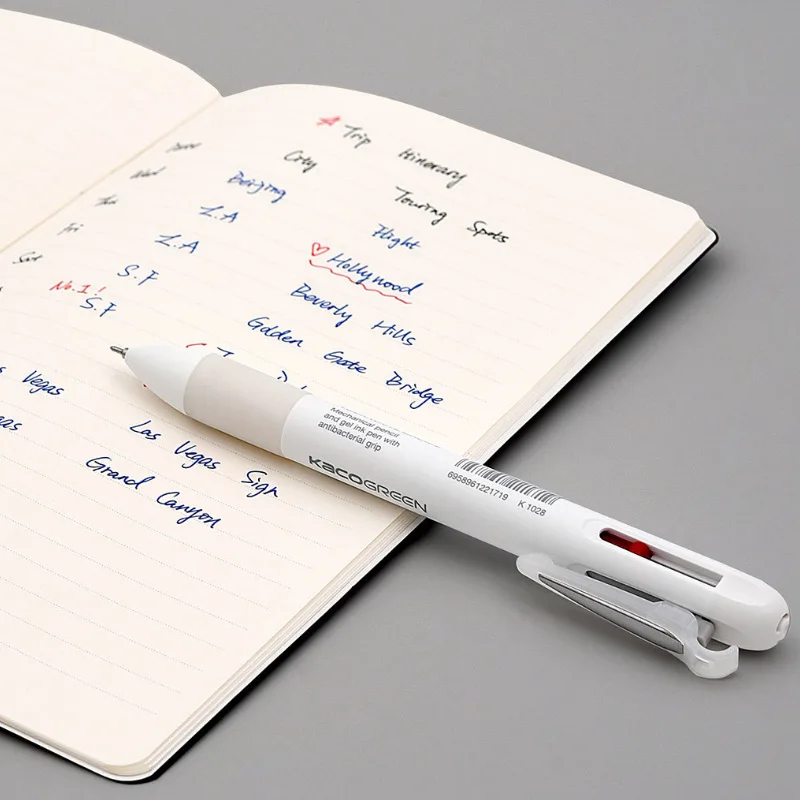 Trip Itinerary
City Touring Spots
Beijing Flight
Wed L.A Hollywood
Thu L.A Beverly Hills
Fri S.F Golden Gate Bridge
Sat No.1! S.F
Vegas Las Vegas Sign
Grand Canyon
Mechanical pencil
and gel ink pen with
antibacterial grip
KACOGREEN
6958961221719 K 1028